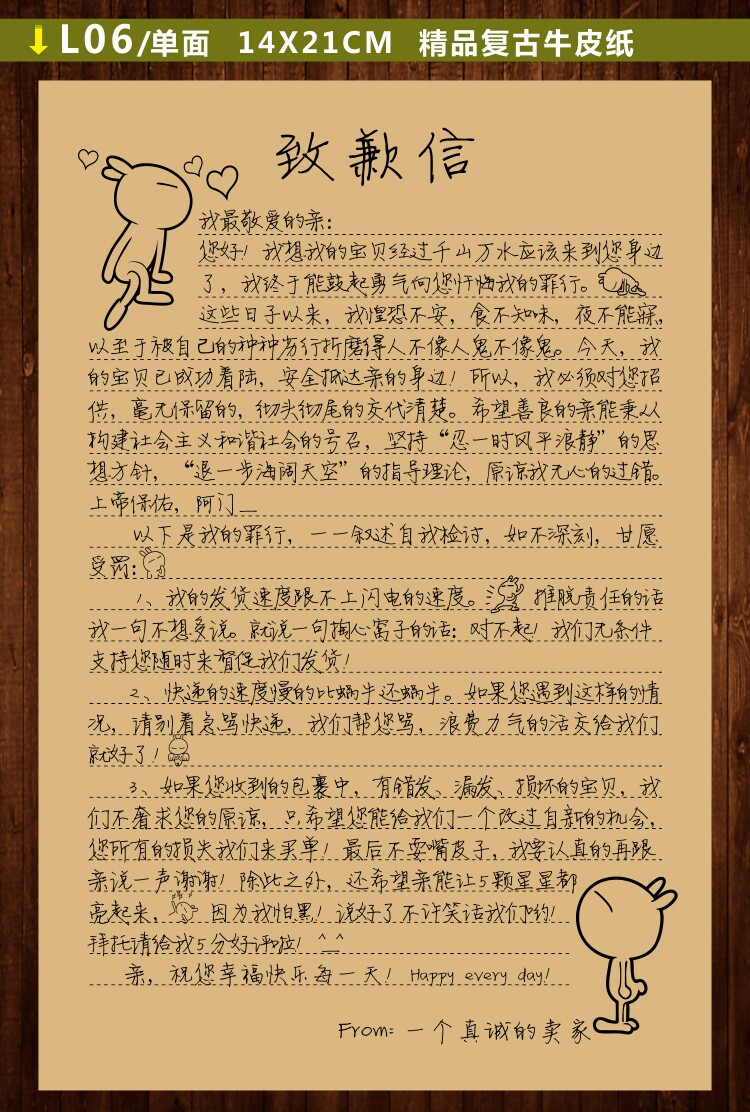 L06/单面 14X21CM 精品复古牛皮纸
致歉信
我最敬爱的亲：
您好！我想我的宝贝经过千山万水应该来到您身边
了，我终于能鼓起勇气向您忏悔我的罪行。
这些日子以来，我惶恐不安，食不知味，夜不能寐，
以至于被自己的种种劣行折磨得人不像人鬼不像鬼。今天，我
的宝贝已成功着陆，安全抵达亲的身边！所以，我必须对您招
供，毫无保留的，彻头彻尾的交代清楚。希望善良的亲能秉从
构建社会主义和谐社会的号召，坚持“忍一时风平浪静”的思
想方针，“退一步海阔天空”的指导理论，原谅我无心的过错。
上帝保佑，阿门__
以下是我的罪行，一一叙述自我检讨，如不深刻，甘愿
受罚：
1、我的发货速度跟不上闪电的速度。推脱责任的话
我一句不想多说。就说一句掏心窝子的话：对不起！我们无条件
支持您随时来督促我们发货！
2、快递的速度慢的比蜗牛还蜗牛。如果您遇到这样的情
况，请别着急骂快递，我们帮您骂，浪费力气的活交给我们
就好了！
3、如果您收到的包裹中，有错发、漏发、损坏的宝贝，我
们不奢求您的原谅，只希望您能给我们一个改过自新的机会，
您所有的损失我们来买单！最后不耍嘴皮子，我要认真的再跟
亲说一声谢谢！除此之外，还希望亲能让5颗星星都
亮起来，因为我怕黑！说好了不许笑话我们哟！
拜托请给我5分好评啦！^_^
亲，祝您幸福快乐每一天！Happy every day!
From: 一个真诚的卖家